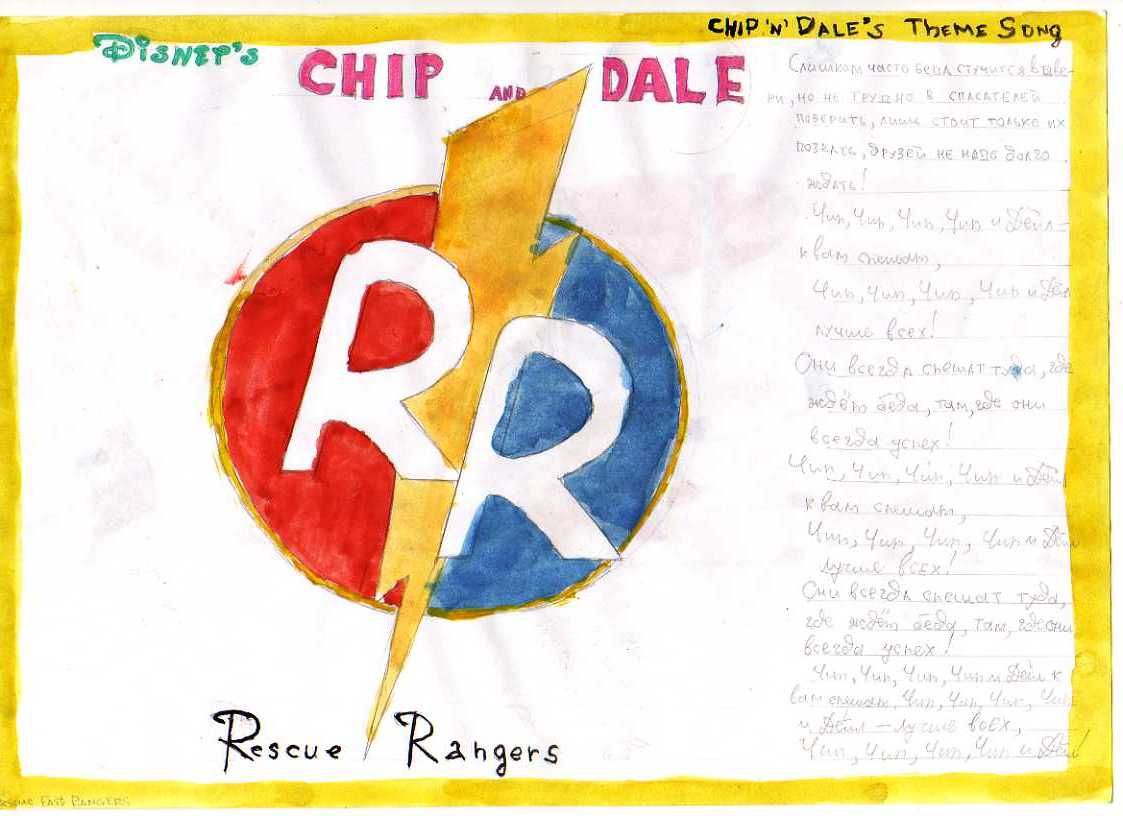 CHIP 'N' DALE'S THEME SONG
DISNEP'S
CHIP AND DALE
R R
Rescue Rangers
Слишком часто беда стучится в две-
ри, но не трудно в спасателей
поверить, лишь стоит только их
позвать, друзей не надо долго
ждать!
Чип, Чип, Чип, Чип и Дейл –
к вам спешат,
Чип, Чип, Чип, Чип и Дейл
лучше всех!
Они всегда спешат туда, где
ждёт беда, там, где они
всегда успех!
Чип, Чип, Чип, Чип и Дейл
к вам спешат,
Чип, Чип, Чип, Чип и Дейл
лучше всех!
Они всегда спешат туда,
где ждёт беда, там, где они
всегда успех!
Чип, Чип, Чип, Чип и Дейл к
вам спешат, Чип, Чип, Чип, Чип
и Дейл – лучше всех,
Чип, Чип, Чип, Чип и Дейл!
FAST RANGERS